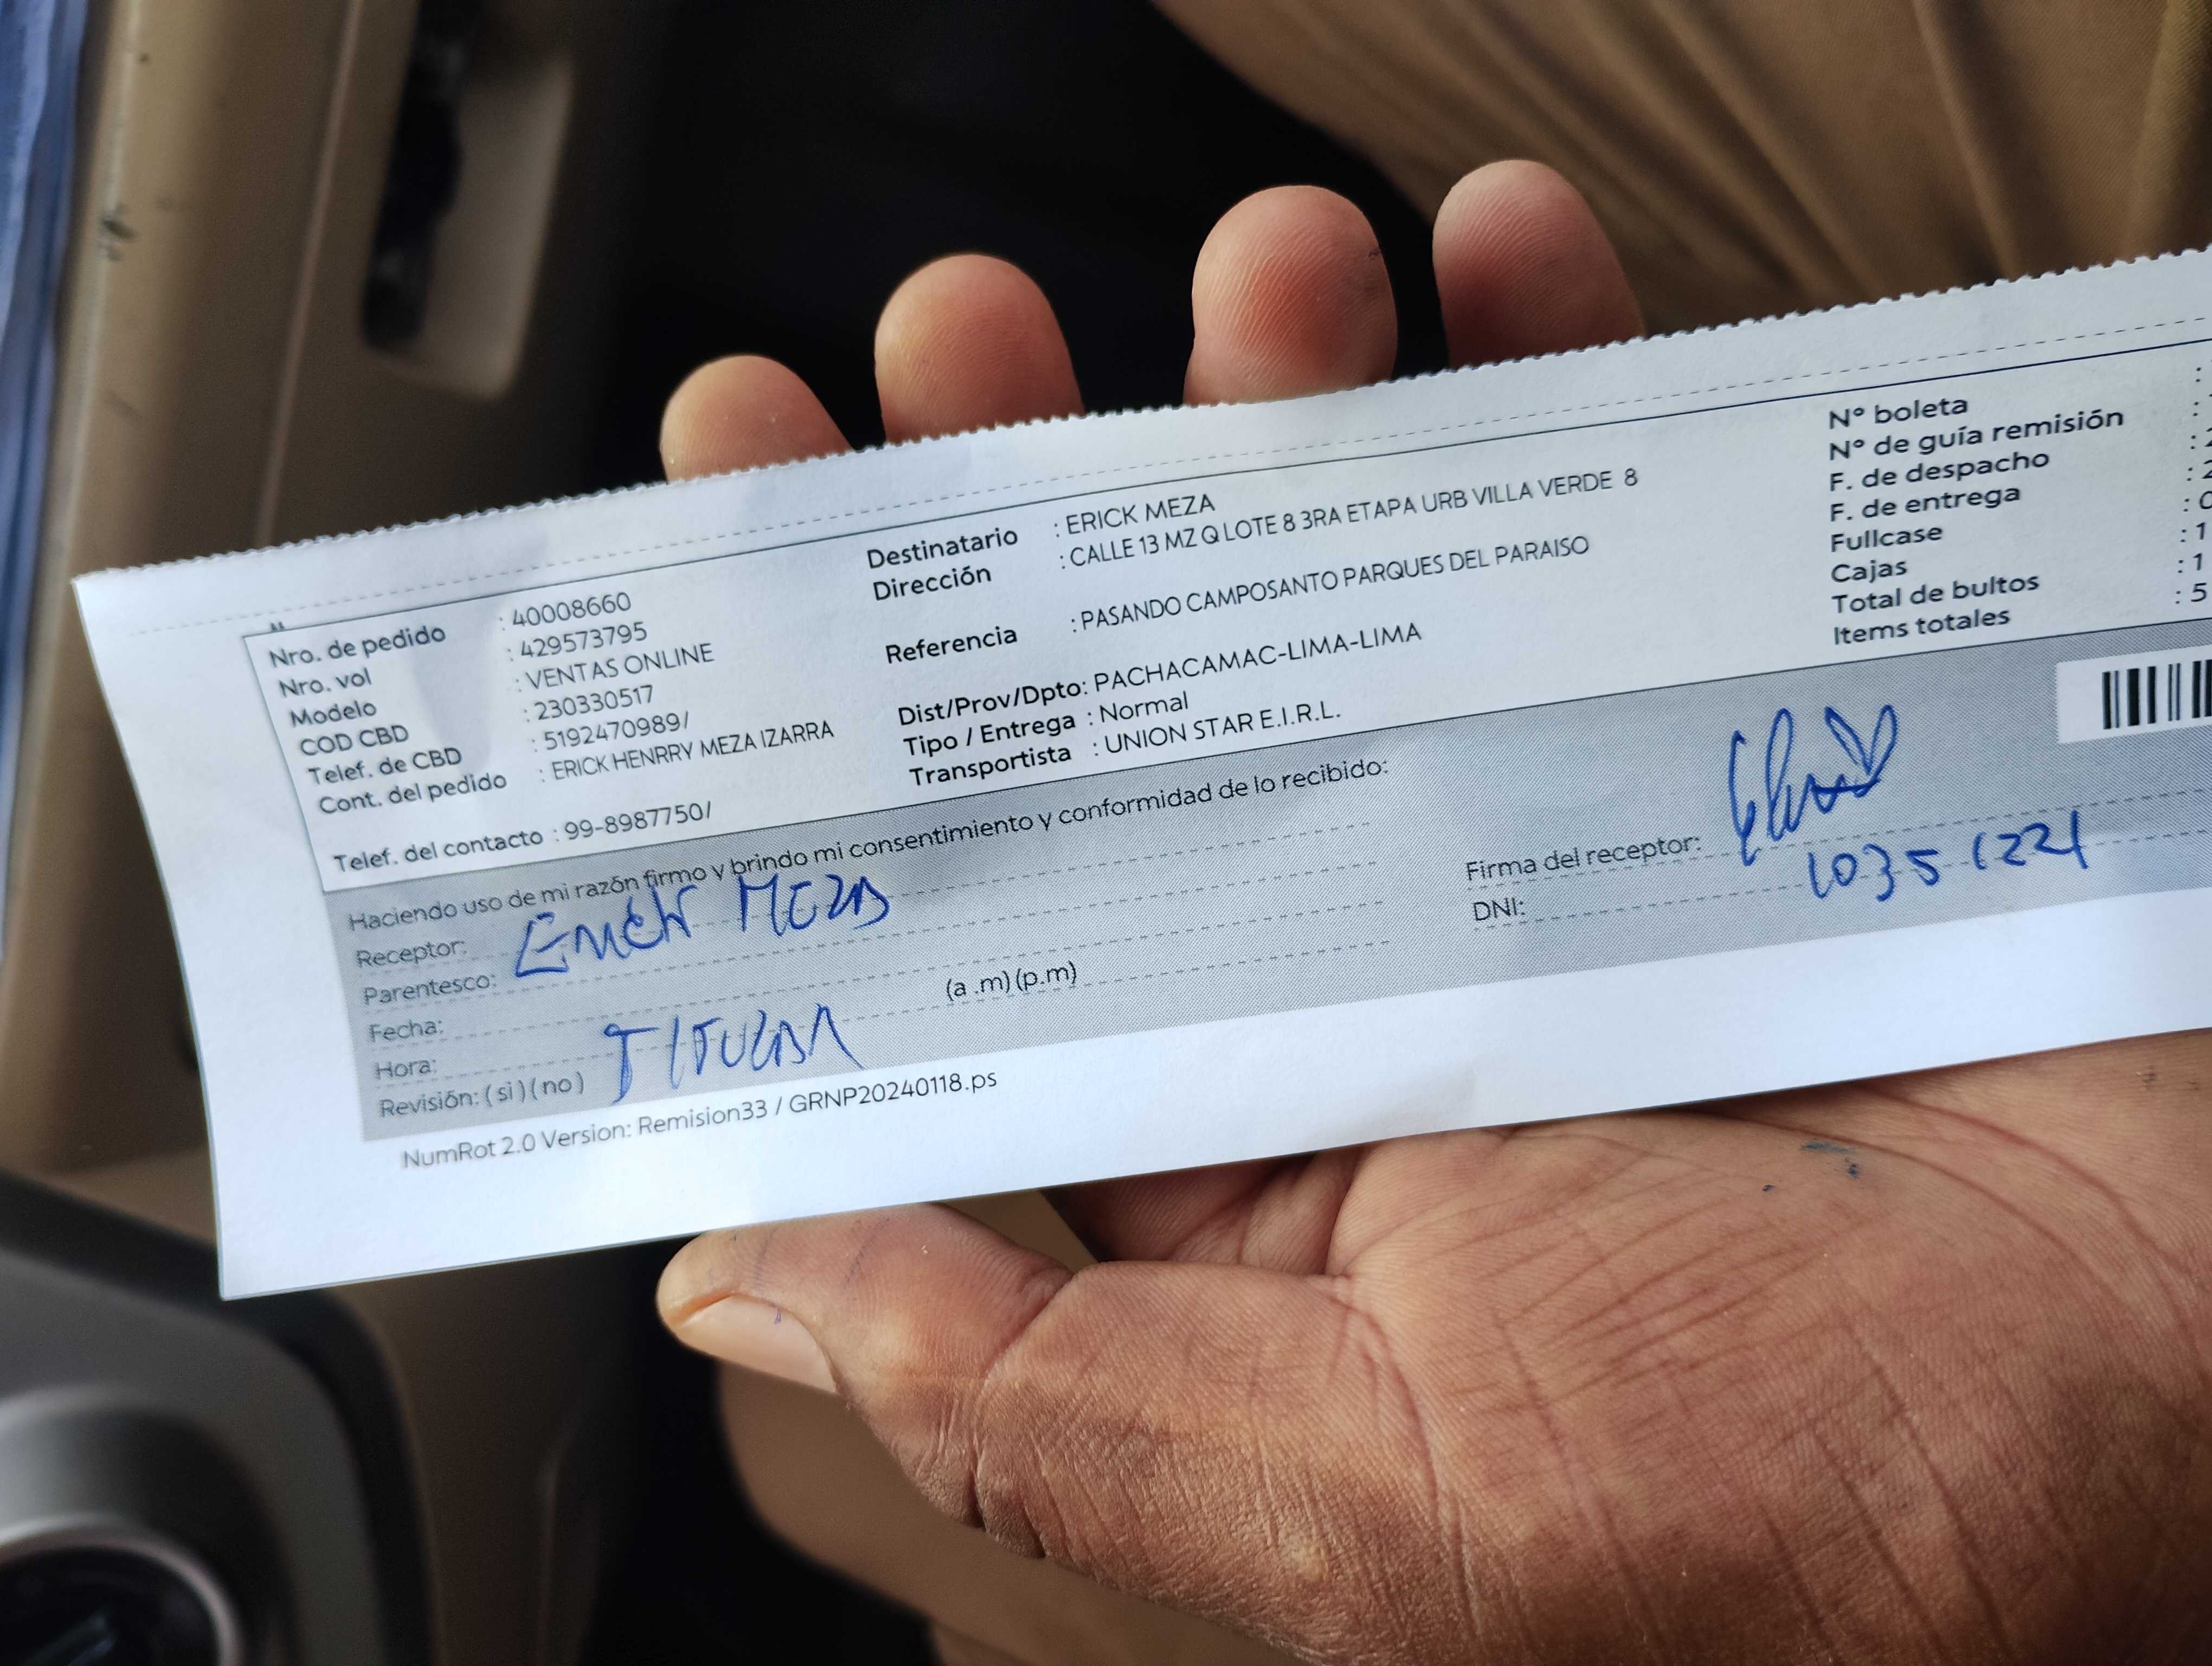 Nro. de pedido : 40008660
Nro. vol : 429573795
Modelo : VENTAS ONLINE
COD CBD : 230330517
Telef. de CBD : 5192470989/
Cont. del pedido : ERICK HENRRY MEZA IZARRA
Telef. del contacto : 99-8987750/
Destinatario : ERICK MEZA
Dirección : CALLE 13 MZ Q LOTE 8 3RA ETAPA URB VILLA VERDE 8
Referencia : PASANDO CAMPOSANTO PARQUES DEL PARAISO
Dist/Prov/Dpto: PACHACAMAC-LIMA-LIMA
Tipo / Entrega : Normal
Transportista : UNION STAR E.I.R.L.
Nº boleta :
Nº de guía remisión :
F. de despacho : 2
F. de entrega : 2
Fullcase : 0
Cajas : 1
Total de bultos : 1
Items totales : 5
Haciendo uso de mi razón firmo y brindo mi consentimiento y conformidad de lo recibido:
Receptor: Erick MEZA
Parentesco:
Fecha:
Hora: (a .m) (p.m)
Revisión: ( si ) ( no ) TITULAR
Firma del receptor:
DNI: 10351221
NumRot 2.0 Version: Remision33 / GRNP20240118.ps